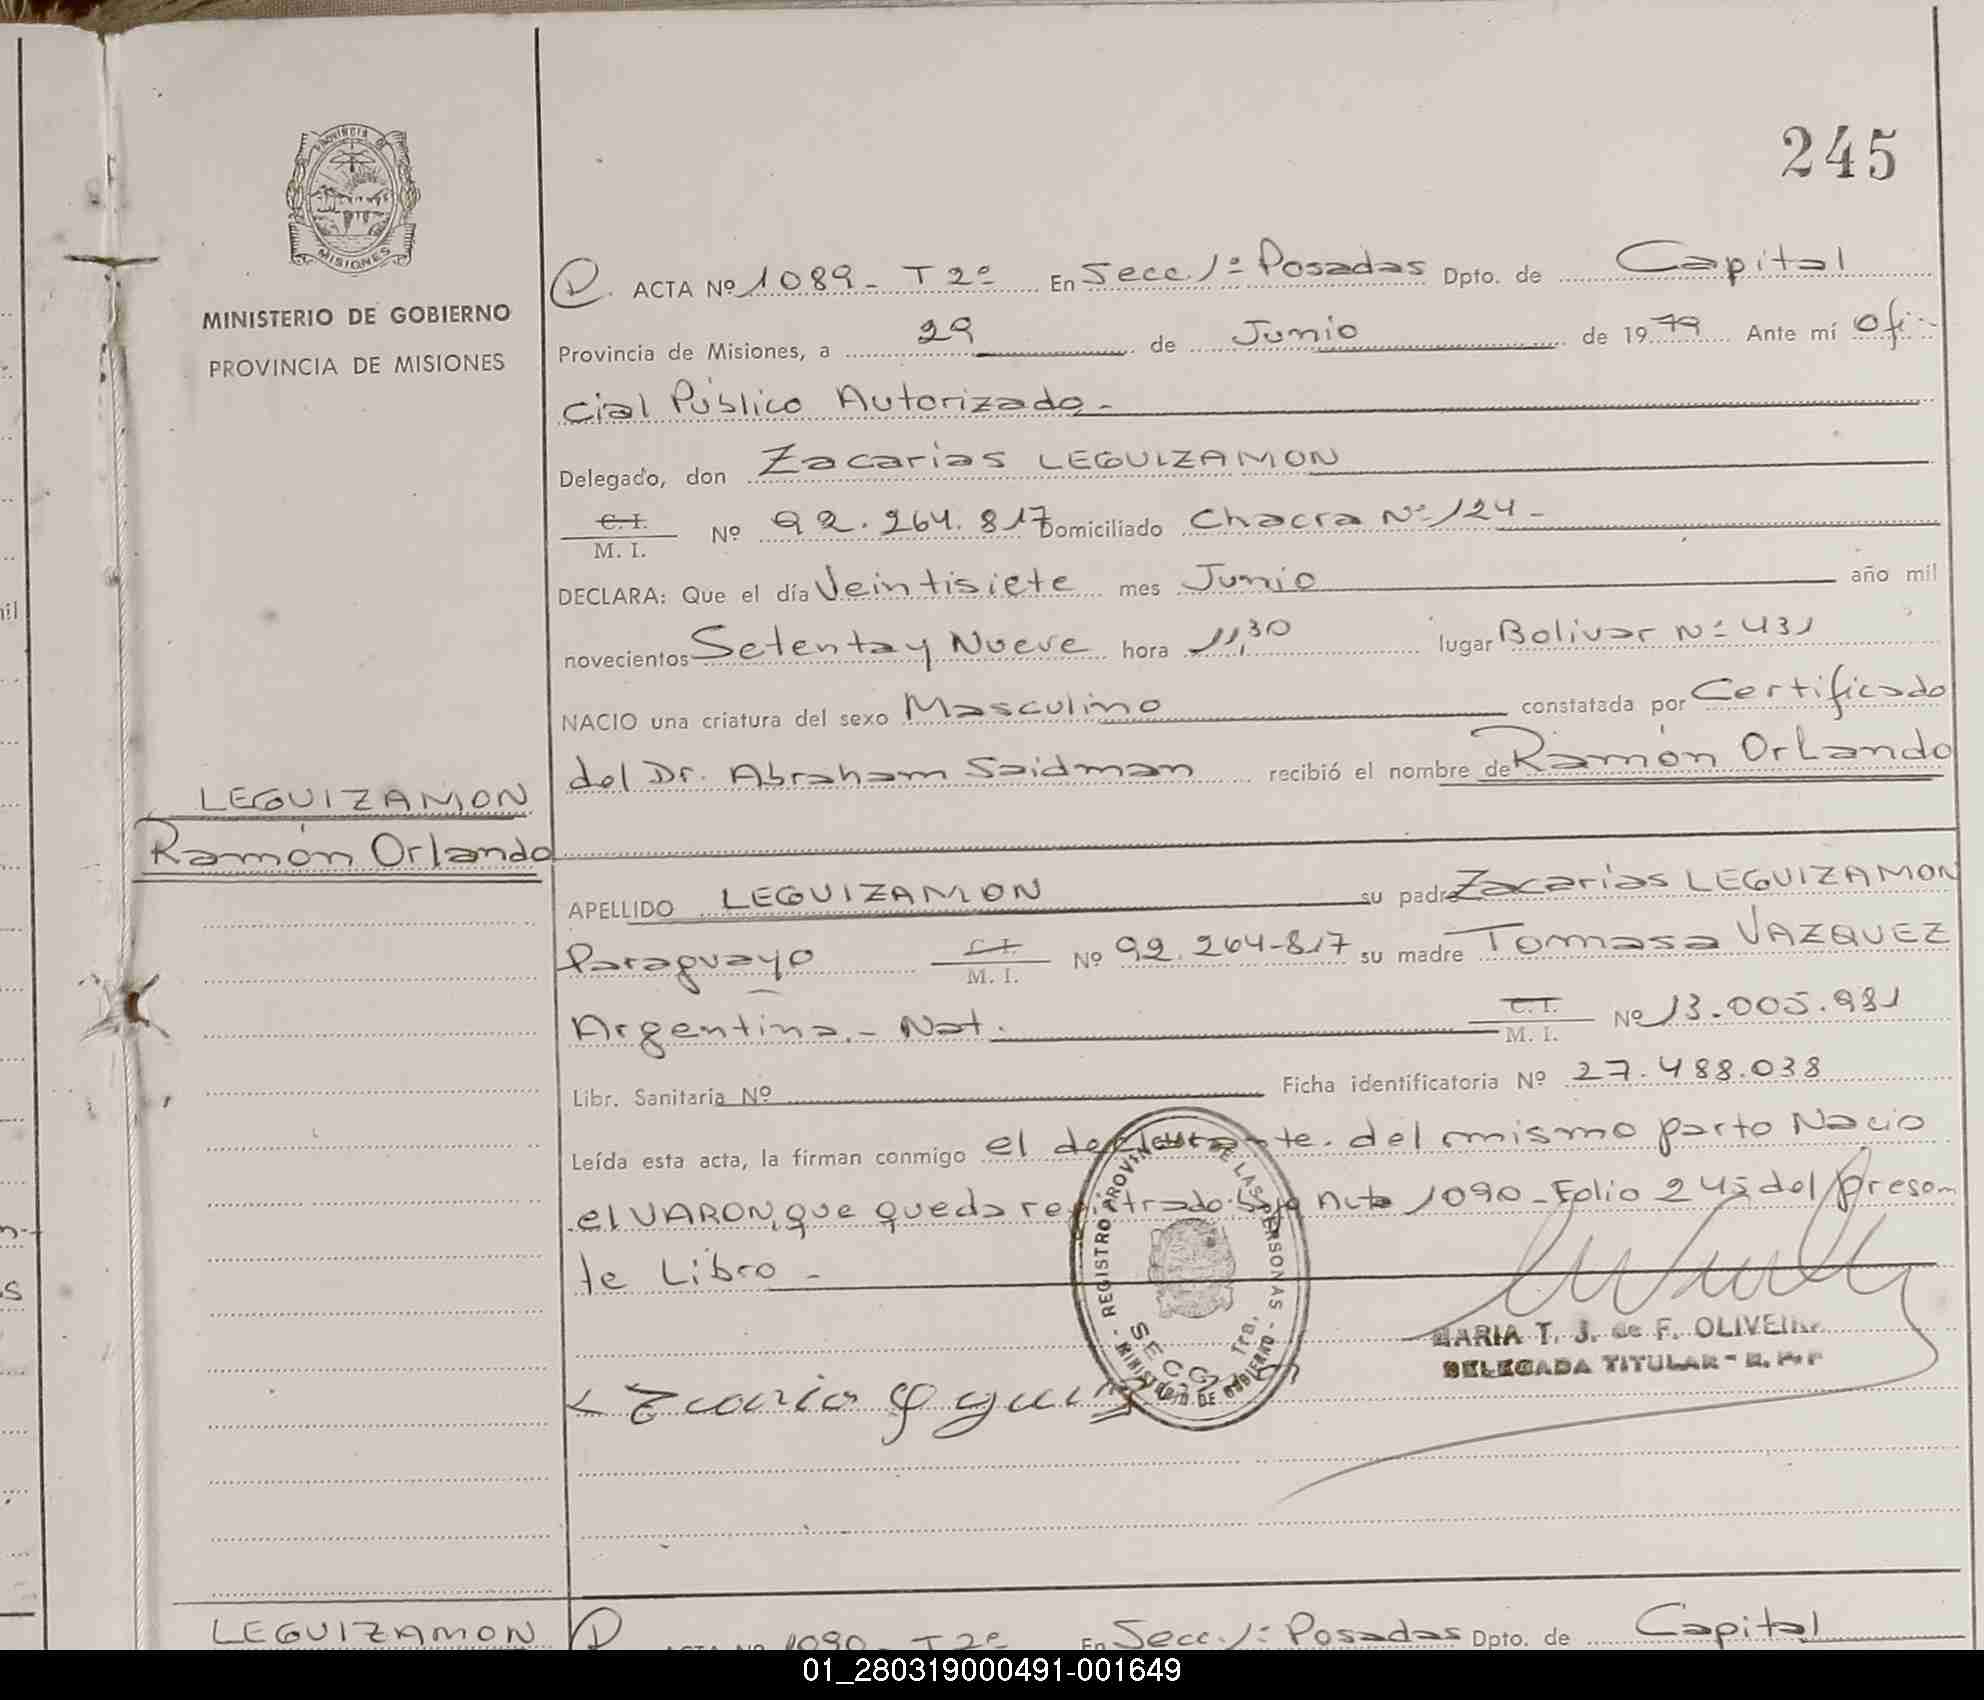 245
PROVINCIA DE
MISIONES
MINISTERIO DE GOBIERNO
PROVINCIA DE MISIONES
ACTA Nº 1089 - T 2º En Secc. 1ª Posadas Dpto. de Capital
Provincia de Misiones, a 29 de Junio de 1979 Ante mí Ofi-
cial Público Autorizado -
Delegado, don Zacarias LEGUIZAMON
C. I.
M. I. Nº 92.264.817 Domiciliado Chacra Nº 124 -
DECLARA: Que el día Veintisiete mes Junio año mil
novecientos Setenta y Nueve hora 11,30 lugar Bolivar Nº 431
NACIO una criatura del sexo Masculino constatada por Certificado
del Dr. Abraham Saidman recibió el nombre de Ramón Orlando
LEGUIZAMON
Ramón Orlando
APELLIDO LEGUIZAMON su padre Zacarias LEGUIZAMON
Paraguayo C. I. M. I. Nº 92.264-817 su madre Tomasa VAZQUEZ
Argentina. - Nat. C. I. M. I. Nº 13.005.931
Libr. Sanitaria Nº Ficha identificatoria Nº 27.488.038
Leída esta acta, la firman conmigo el declarante. del mismo parto Nacio
el VARON, que queda registrado bajo Acta 1090 - Folio 245 del presen
te Libro -
REGISTRO PROVINCIAL DE LAS PERSONAS
SECC. 1ra.
MINISTERIO DE GOBIERNO
MARIA T. J. de F. OLIVEIRA
DELEGADA TITULAR - R. P. P
LEGUIZAMON
ACTA Nº 1090 - T 2º En Secc. 1ª Posadas Dpto. de Capital
01_280319000491-001649